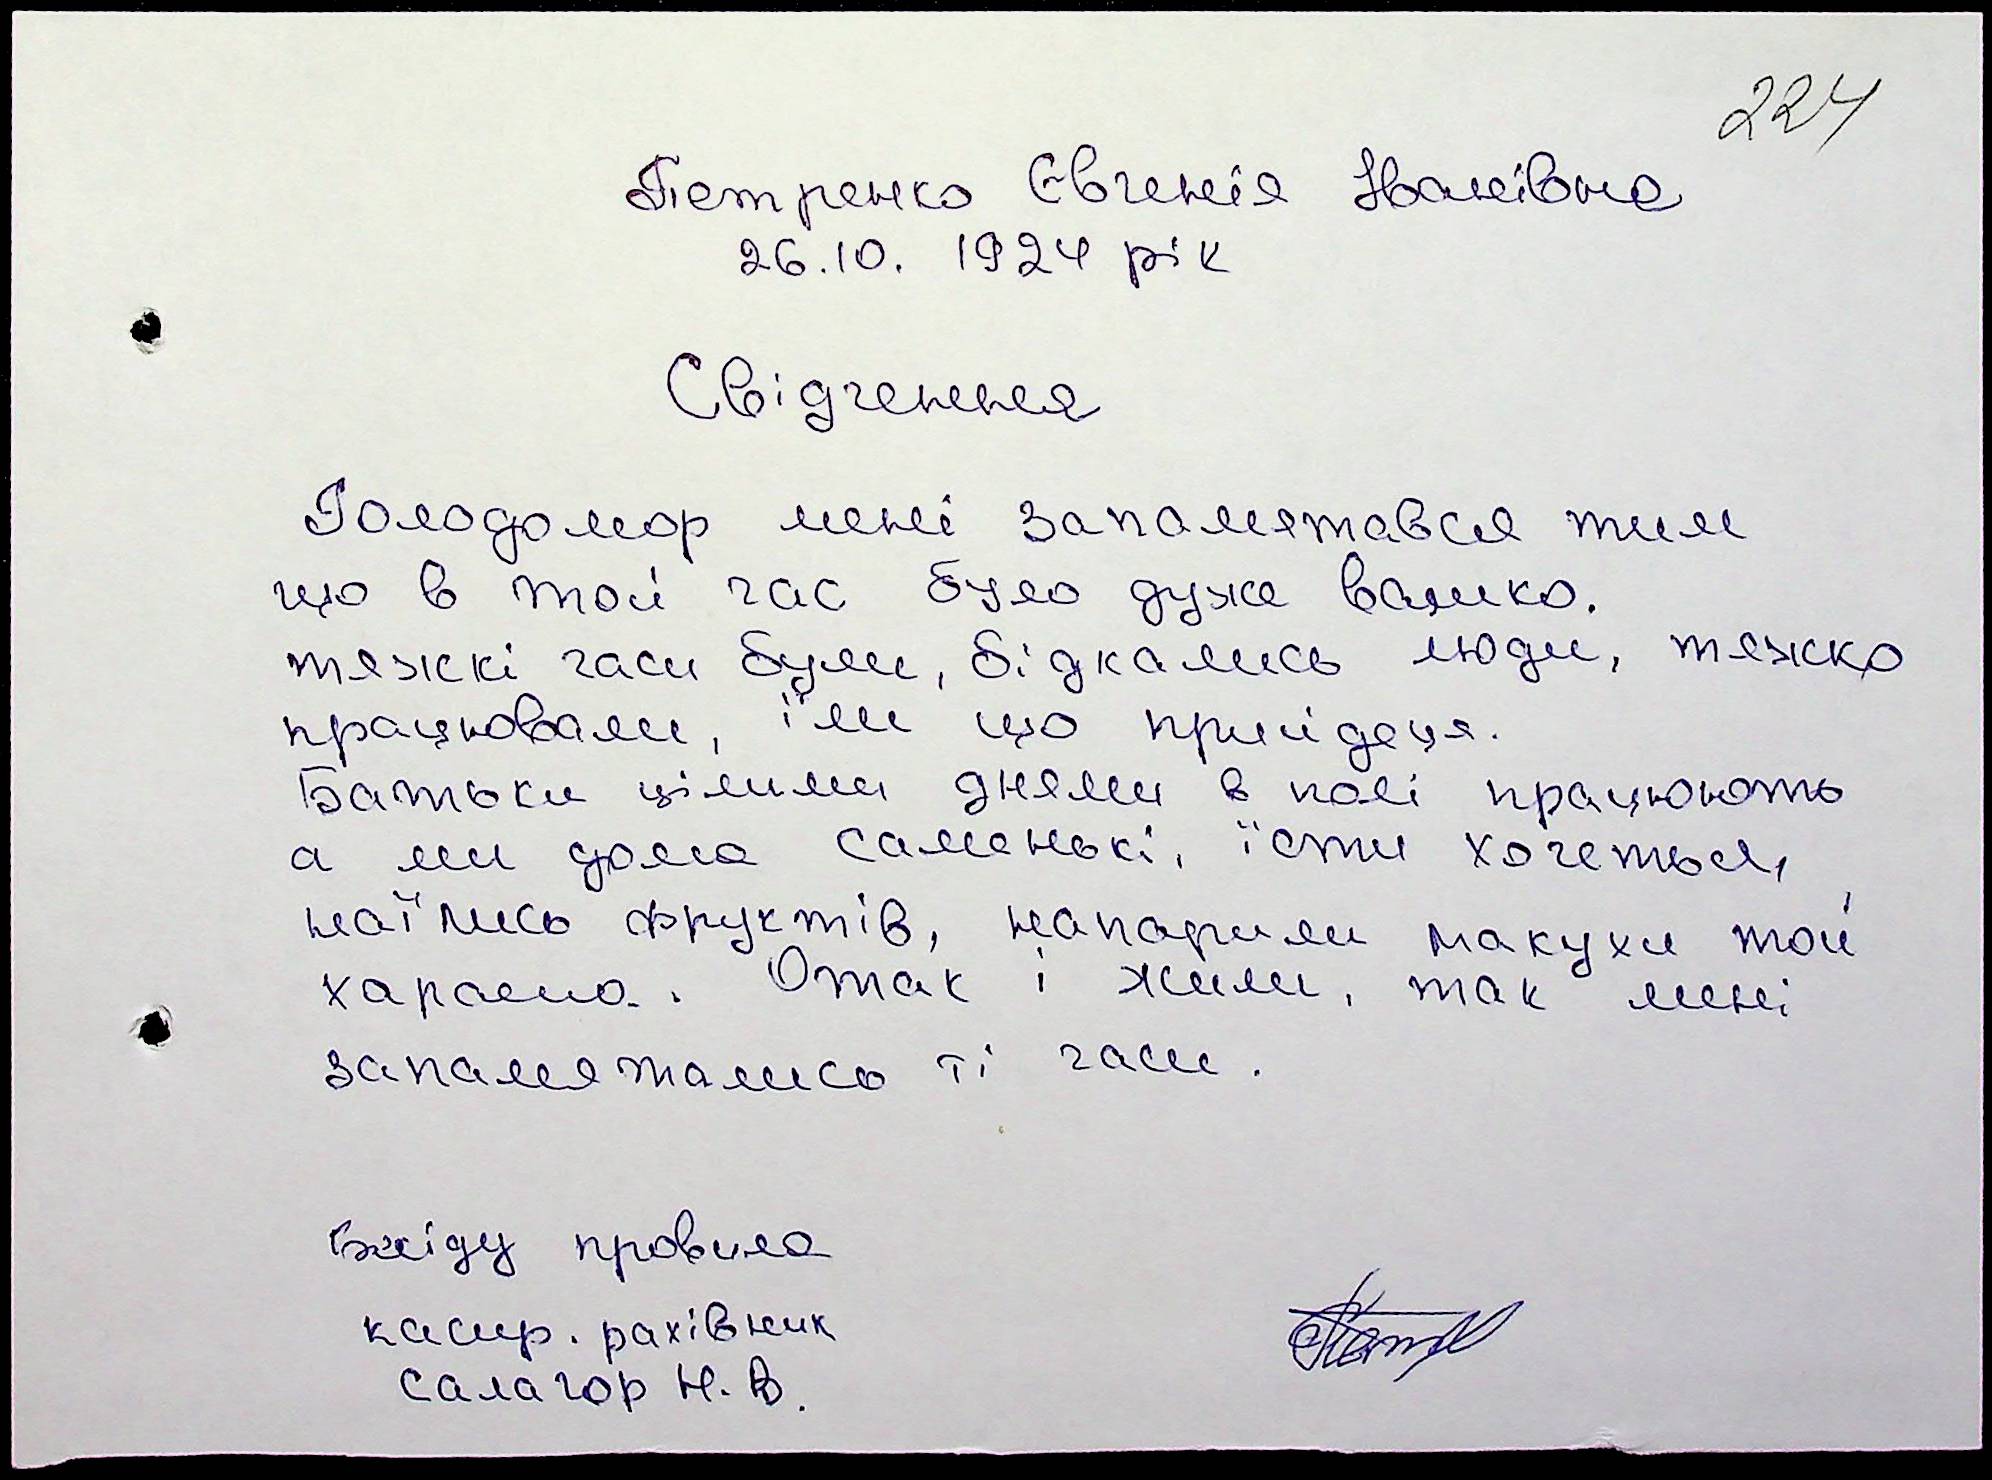 224
Петренко Євгенія Іванівна
26.10. 1924 рік
Свідчення
Голодомор мені запамятався тим
що в той час було дуже важко.
тяжкі часи були, бідкались люди, тяжко
працювали, їли що прийдеця.
Батьки цілими днями в полі працюють
а ми дома саменькі, їсти хочеться,
наїлись фруктів, напарили макухи той
харашо. Отак і жили, так мені
запамятались ті часи.
Бесіду провила
касир. рахівник
Салагор Н. В.